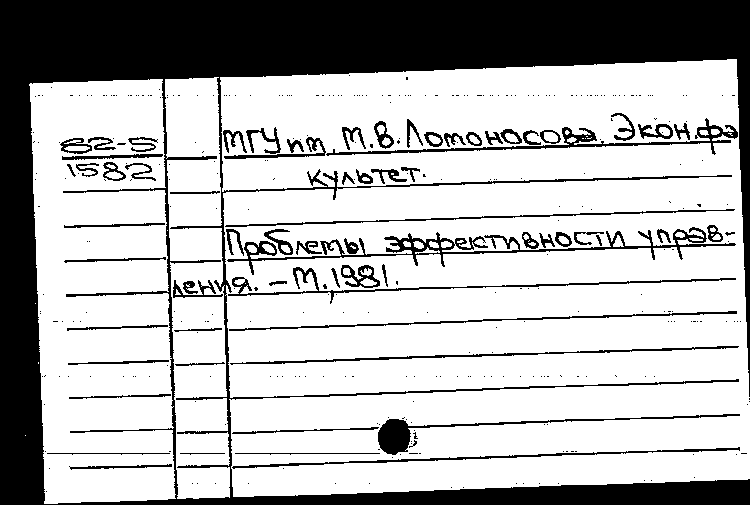 82-5
1582
МГУ им. М.В. Ломоносова. Экон. фа
культет.
Проблемы эффективности управ-
ления. – М., 1981.